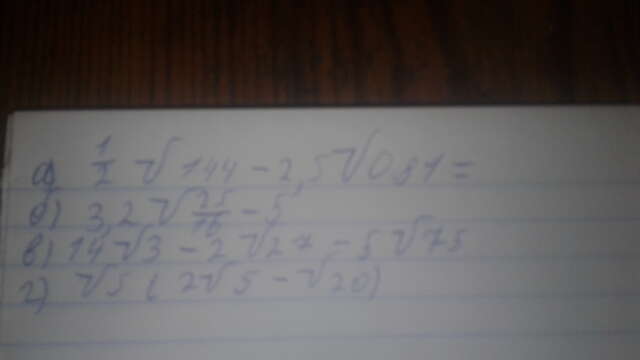 а) 1/2 √144 - 2,5 √0,81 =
б) 32 √25/16 - 5,
в) 14√3 - 2√27 - 5√75
г) √5 (2√5 - √20)